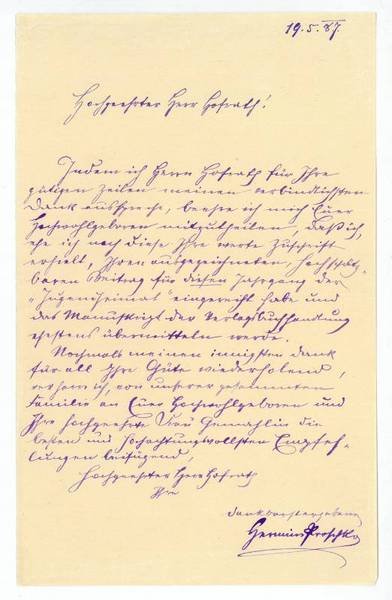 19. 5. 87.
Hochgeehrter Herr Hofrath!
Indem ich Herrn Hofrath für Ihre
gütigen Zeilen meinen verbindlichsten
Dank ausspreche, beehre ich mich Euer
Hochwohlgeboren mitzutheilen, daß ich,
ehe ich noch diese Ihre werte Zuschrift
erhielt, Ihren ausgezeichneten, hochschätz-
baren Beitrag für diesen Jahrgang der
"Jugendheimat" eingereiht habe und
das Manuskript der Verlagsbuchhandlung
ehestens übermitteln werde.
Nochmals meinen innigsten Dank
für all Ihre Güte wiederholend,
ich, von unserer gesammten
Familie an Euer Hochwohlgeboren und
Ihre hochgeehrte Frau Gemahlin die
besten und hochachtungsvollsten Empfeh-
lungen beifügend,
Hochgeehrter Herr Hofrath
Ihre
dankbarst ergebene
Hermine Proschko